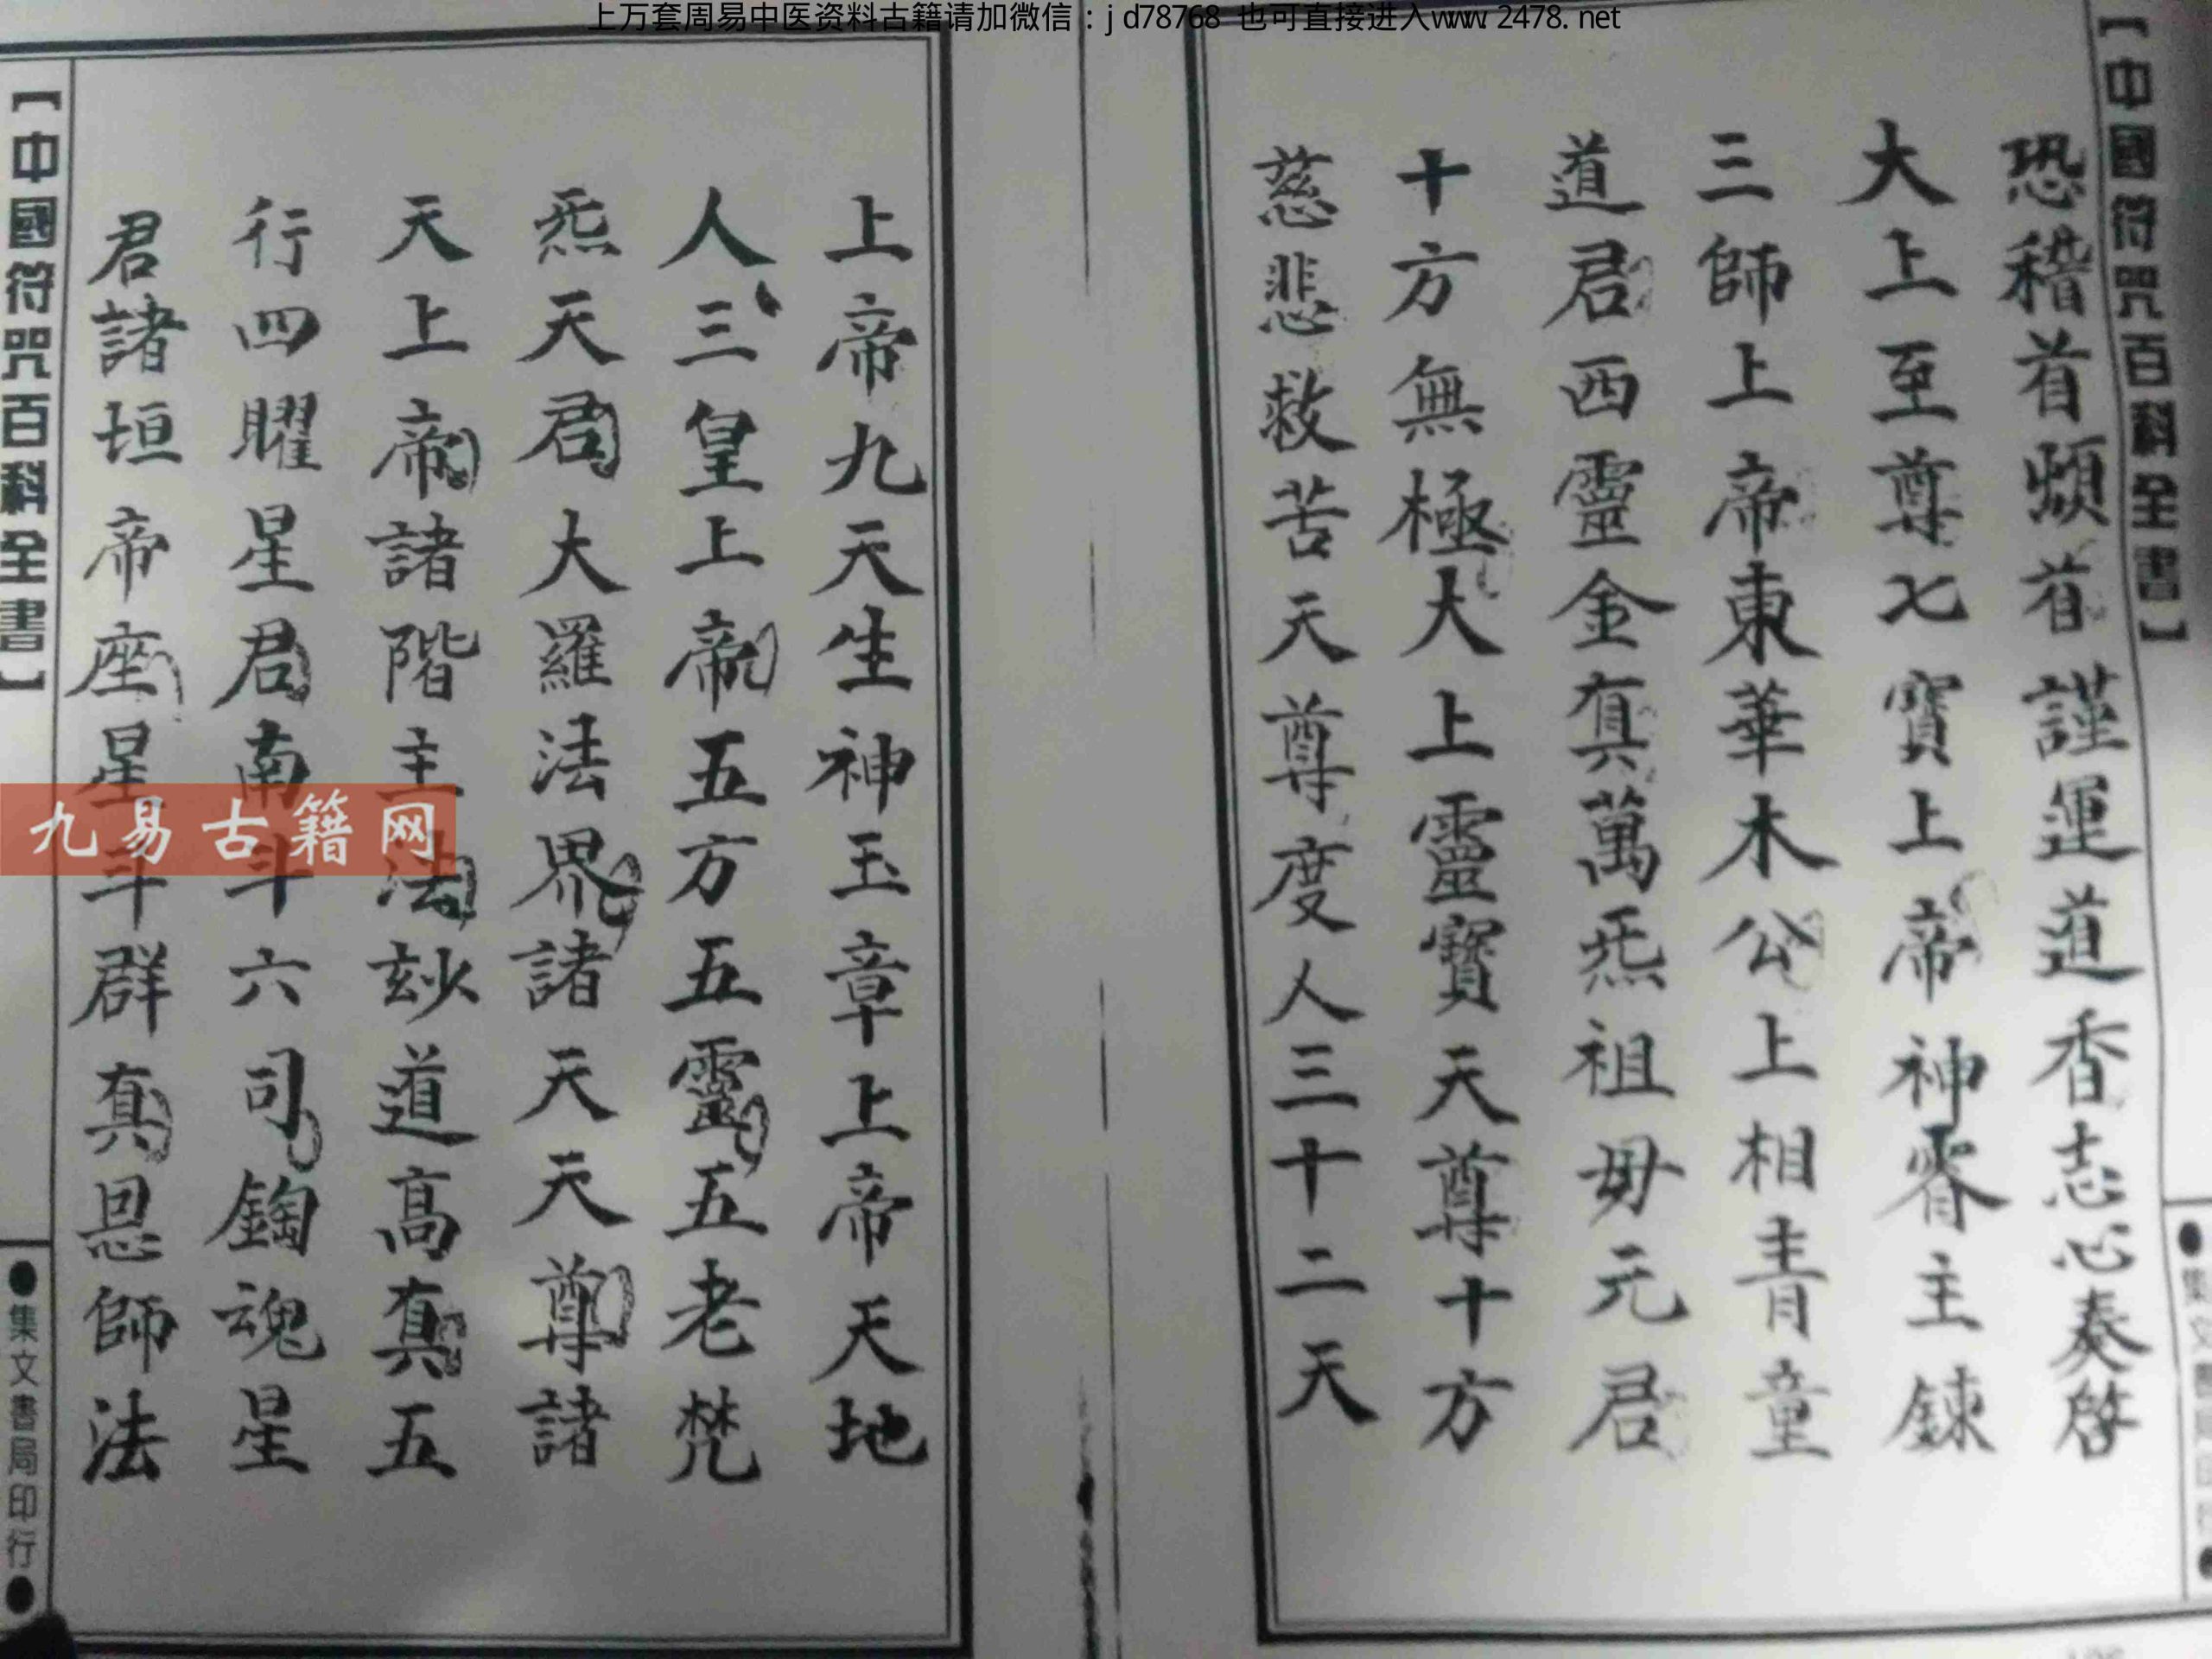 上万套周易中医资料古籍请加微信：jd78768 也可直接进入www.2478.net
【中國符咒百科全書】
恐稽首頓首謹運道香志心奏啓
大上至尊七寶上帝神霄主鍊
三師上帝東華木公上相青童
道君西靈金真萬炁祖毋元君
十方無極大上靈寶天尊十方
慈悲救苦天尊度人三十二天
上帝九天生神玉章上帝天地
人三皇上帝五方五靈五老梵
炁天君大羅法界諸天天尊諸
天上帝諸階主法玅道高真五
行四曜星君南斗六司魂星
君諸垣帝座星斗群真恩師法
【中國符咒百科全書】
●集文書局印行●
九易古籍网